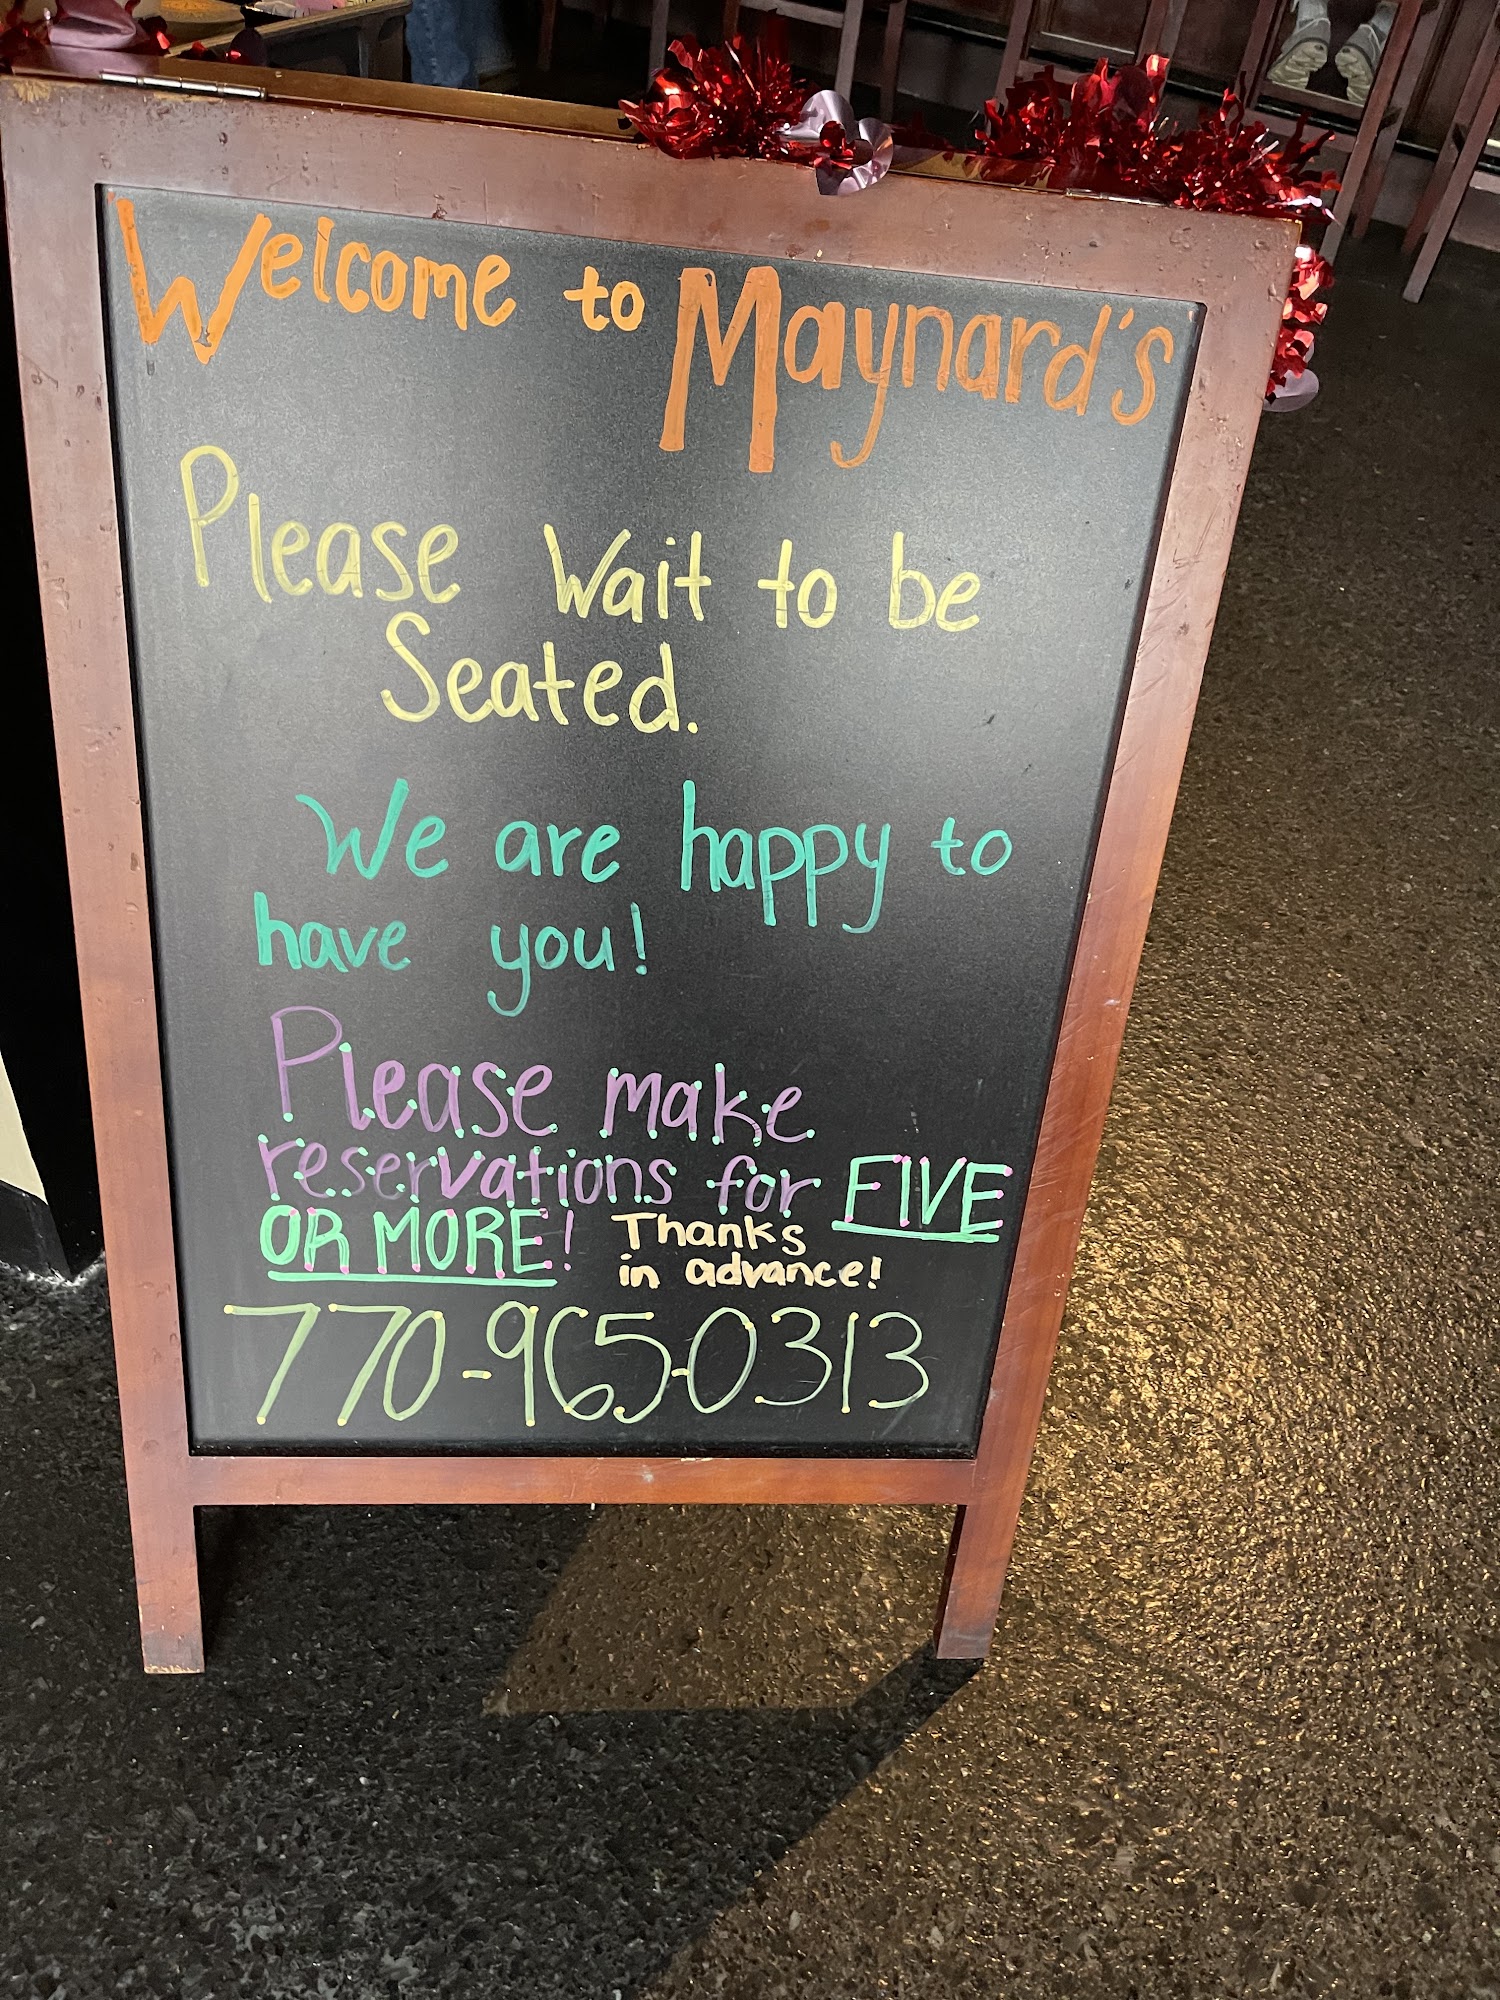 Welcome to Maynard's
Please Wait to be
Seated.
We are happy to
have you!
Please make
reservations for FIVE
OR MORE! Thanks
in advance!
770-965-0313